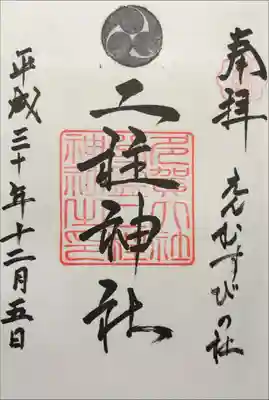 奉拝
えんむすびの社
二柱神社
平成三十年十二月五日